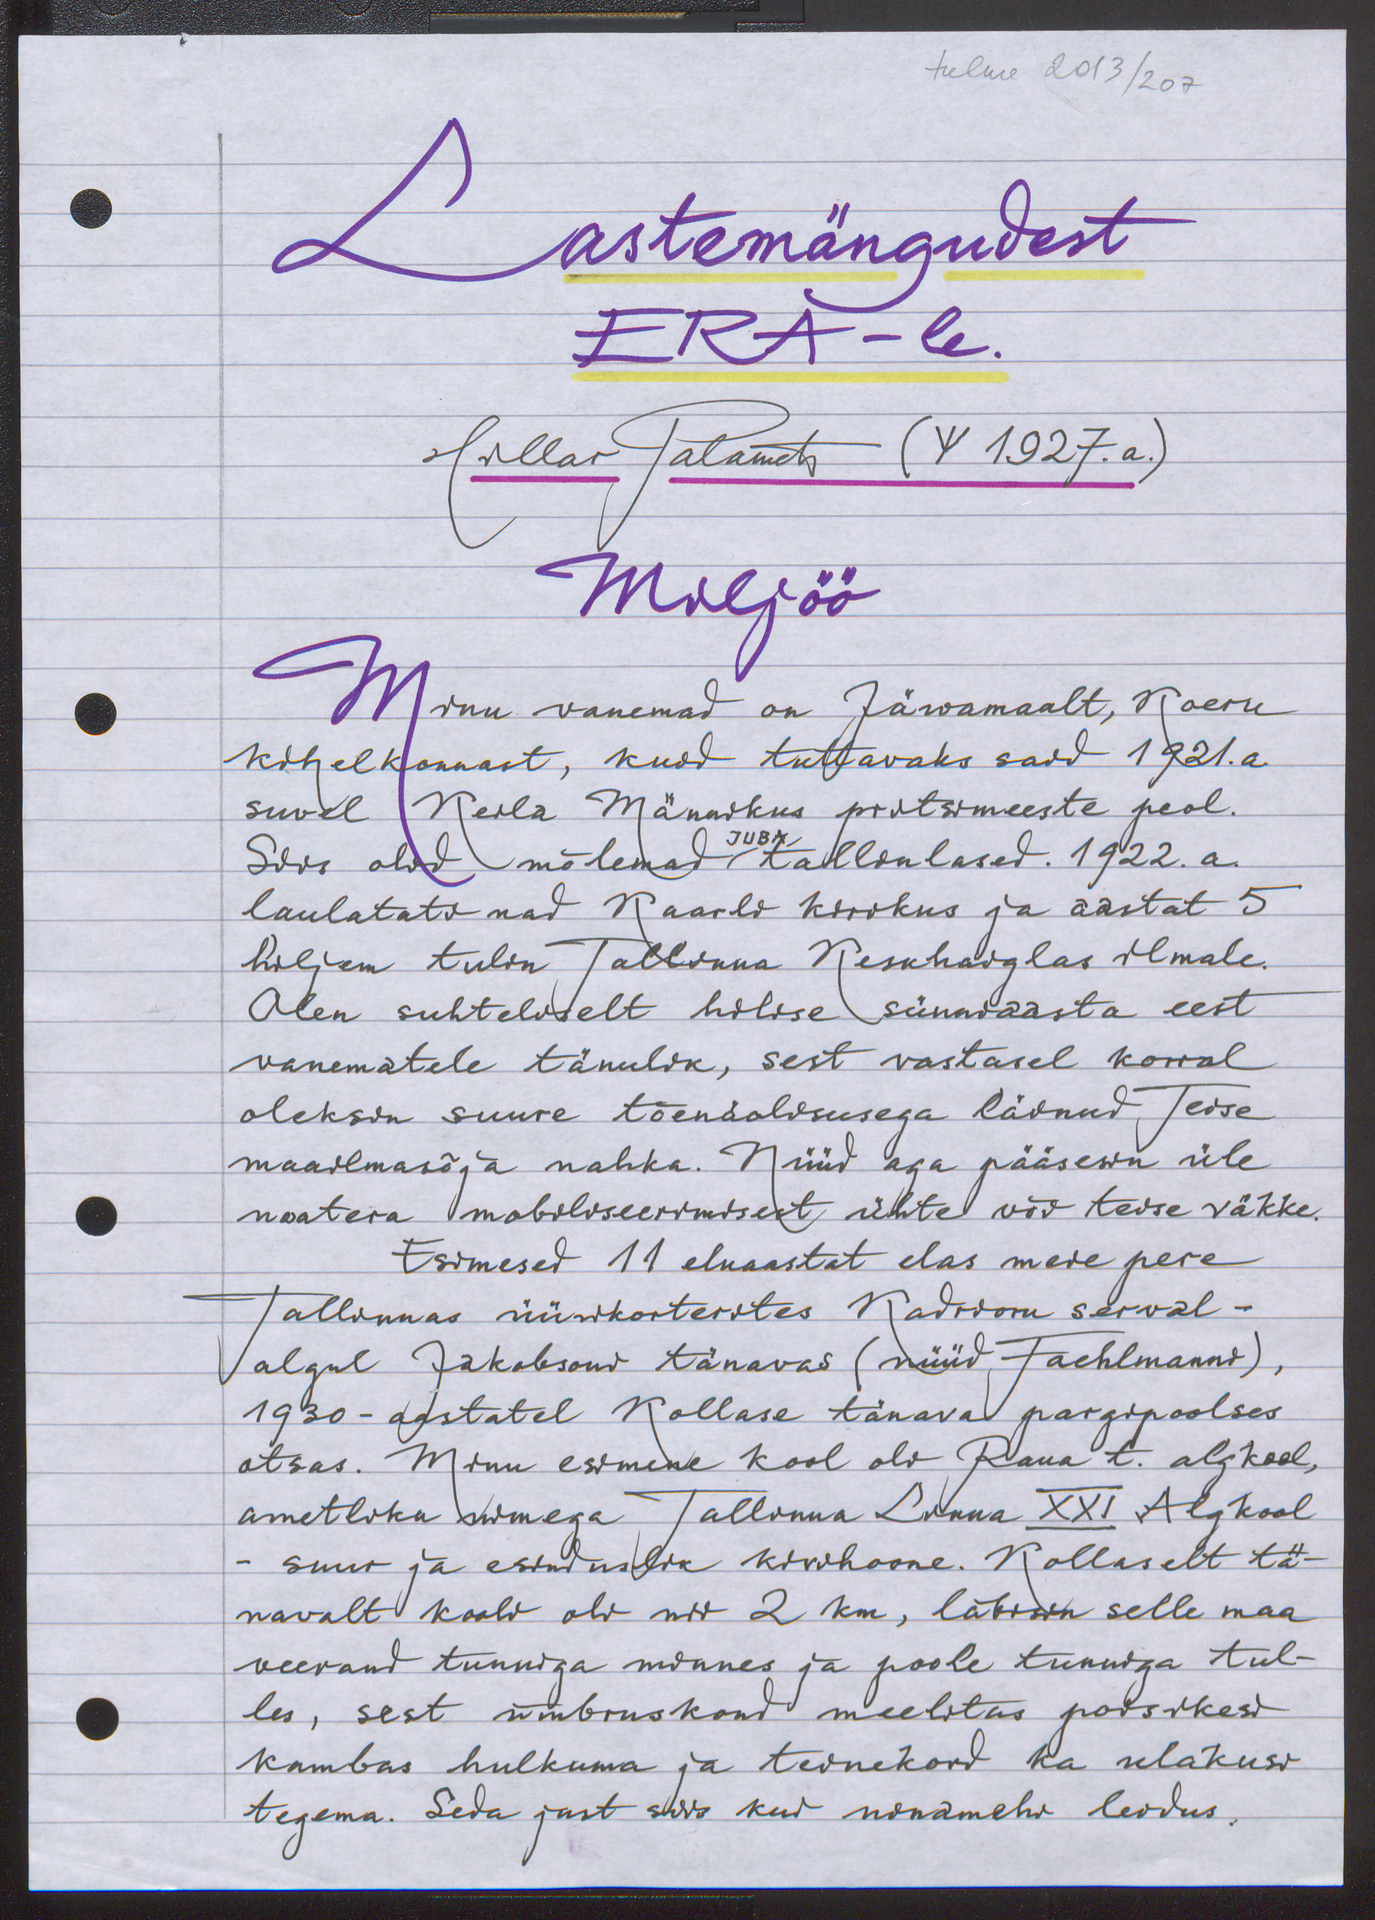 tulme 2013/207
Lastemängudest
ERA-le.
Hillar Palamets (Ψ 1927.a.)
Miljöö
Minu vanemad on Järvamaalt, Koeru
kihelkonnast, kuid tuttavaks said 1921.a.
suvel Keila Männikus pritsimeeste peol.
Siis olid mõlemad JUBA tallinlased. 1922.a.
laulatati nad Kaarli kirikus ja aastat 5
hiljem tulin Tallinna Keskhaiglas ilmale.
Olen suhteliselt hilise sünniaasta eest
vanematele tänulik, sest vastasel korral
oleksin suure tõenäolisusega läinud Teise
maailmasõja nahka. Nüüd aga pääsesin üle
noatera mobiliseerimisest ühte või teise väkke.
Esimesed 11 eluaastat elas meie pere
Tallinnas üürikorterites Kadrioru serval -
algul Jakobsoni tänavas (nüüd Faehlmanni),
1930-aastatel Kollase tänava pargipoolses
otsas. Minu esimene kool oli Raua t. algkool,
ametliku nimega Tallinna Linna XXI Algkool
- suur ja esinduslik kivihoone. Kollaselt tä-
navalt kooli oli nii 2 km, läbisin selle maa
veerand tunniga minnes ja poole tunniga tul-
les, sest ümbruskond meelitas poisikesi
kambas hulkuma ja teinekord ka ulakusi
tegema. Seda just siis kui ninamehi leidus.